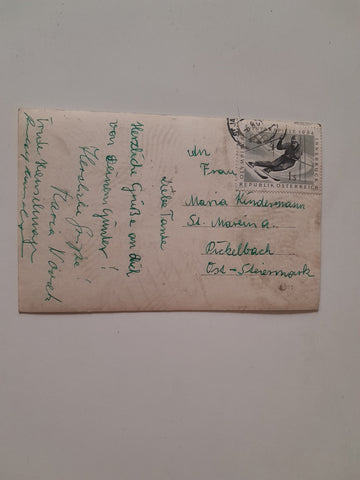 Liebe Tante
Herzliche Grüße an dich
von deinem Günter!
Herzliche Grüße!
Maria
Trude
An
Frau
Maria Kindermann
St. Marein a.
Pickelbach
Ost-Steiermark
REPUBLIK ÖSTERREICH